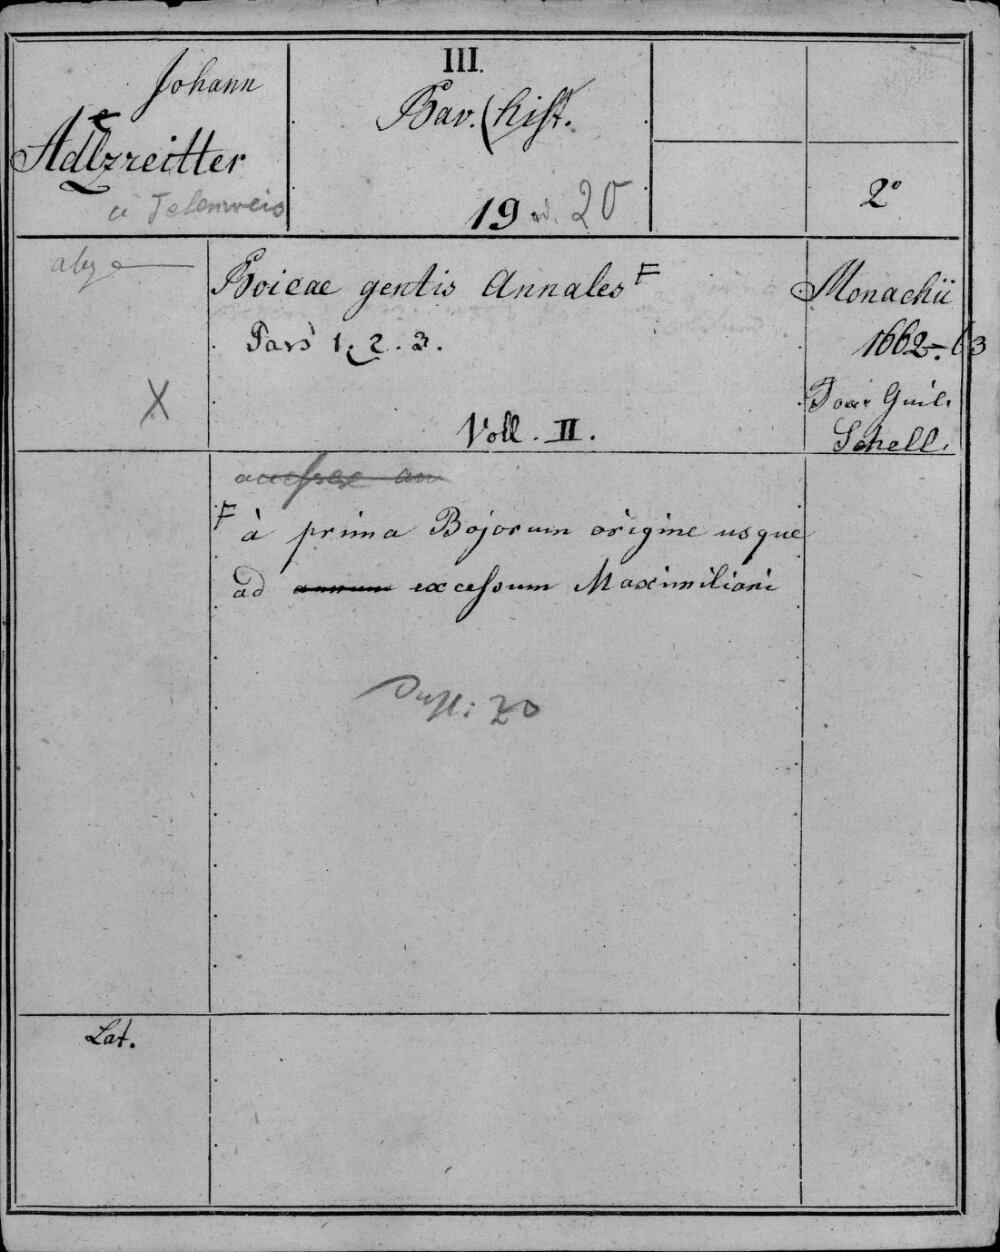 Johann
Adlzreitter
à Tetenweis
III.
Bav. (hist.
19 u. 20
2°
abg
Boicae gentis Annales F
Pars 1. 2. 3.
X
Voll. II.
Monachii
1662-63
Joa. Guil.
Schell.
F à prima Bojorum origine usque
ad annum excessum Maximiliani
Dupl: 20
Lat.